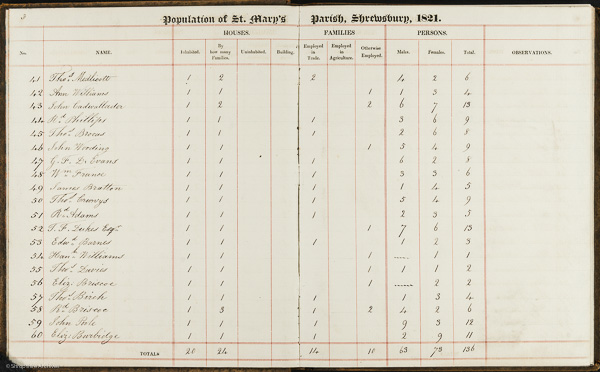 3 Population of St. Mary's Parish, Shrewsbury, 1821.
HOUSES. FAMILIES PERSONS.
No. NAME. Inhabited. By how many Families. Uninhabited. Building. Employed in Trade. Employed in Agriculture. Otherwise Employed. Males. Females. Total. OBSERVATIONS.
41 Thos. Medlicott 1 2 2 4 2 6
42 Ann Williams 1 1 1 1 3 4
43 John Cadwallader 1 2 2 6 7 13
44 Rd. Phillips 1 1 1 3 6 9
45 Thos. Brocas 1 1 1 2 6 8
46 John Wooding 1 1 1 5 4 9
47 G. F. D. Evans 1 1 1 6 2 8
48 Wm France 1 1 1 3 3 6
49 James Bratton 1 1 1 1 4 5
50 Thos. 1 1 1 5 4 9
51 Rd. Adams 1 1 1 2 3 5
52 T. F. Dukes Esqr. 1 1 1 7 6 13
53 Edwd. Barnes 1 1 1 1 2 3
54 Hanh. Williams 1 1 1 ---- 1 1
55 Thos. Davies 1 1 1 1 1 2
56 Eliz. Briscoe 1 1 1 ---- 2 2
57 Thos. Birch 1 1 1 1 3 4
58 Rd. Briscoe 1 3 1 2 4 2 6
59 John 1 1 1 9 3 12
60 Eliz. Burbidge 1 1 1 2 9 11
TOTALS 20 24 14 10 63 73 136